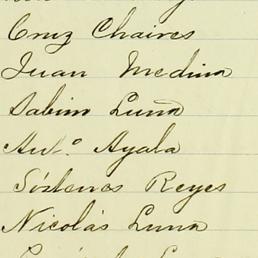 Cruz Chaires
Juan Medina
Sabino Luna
Anto. Ayala
Sóstenes Reyes
Nicolás Luna